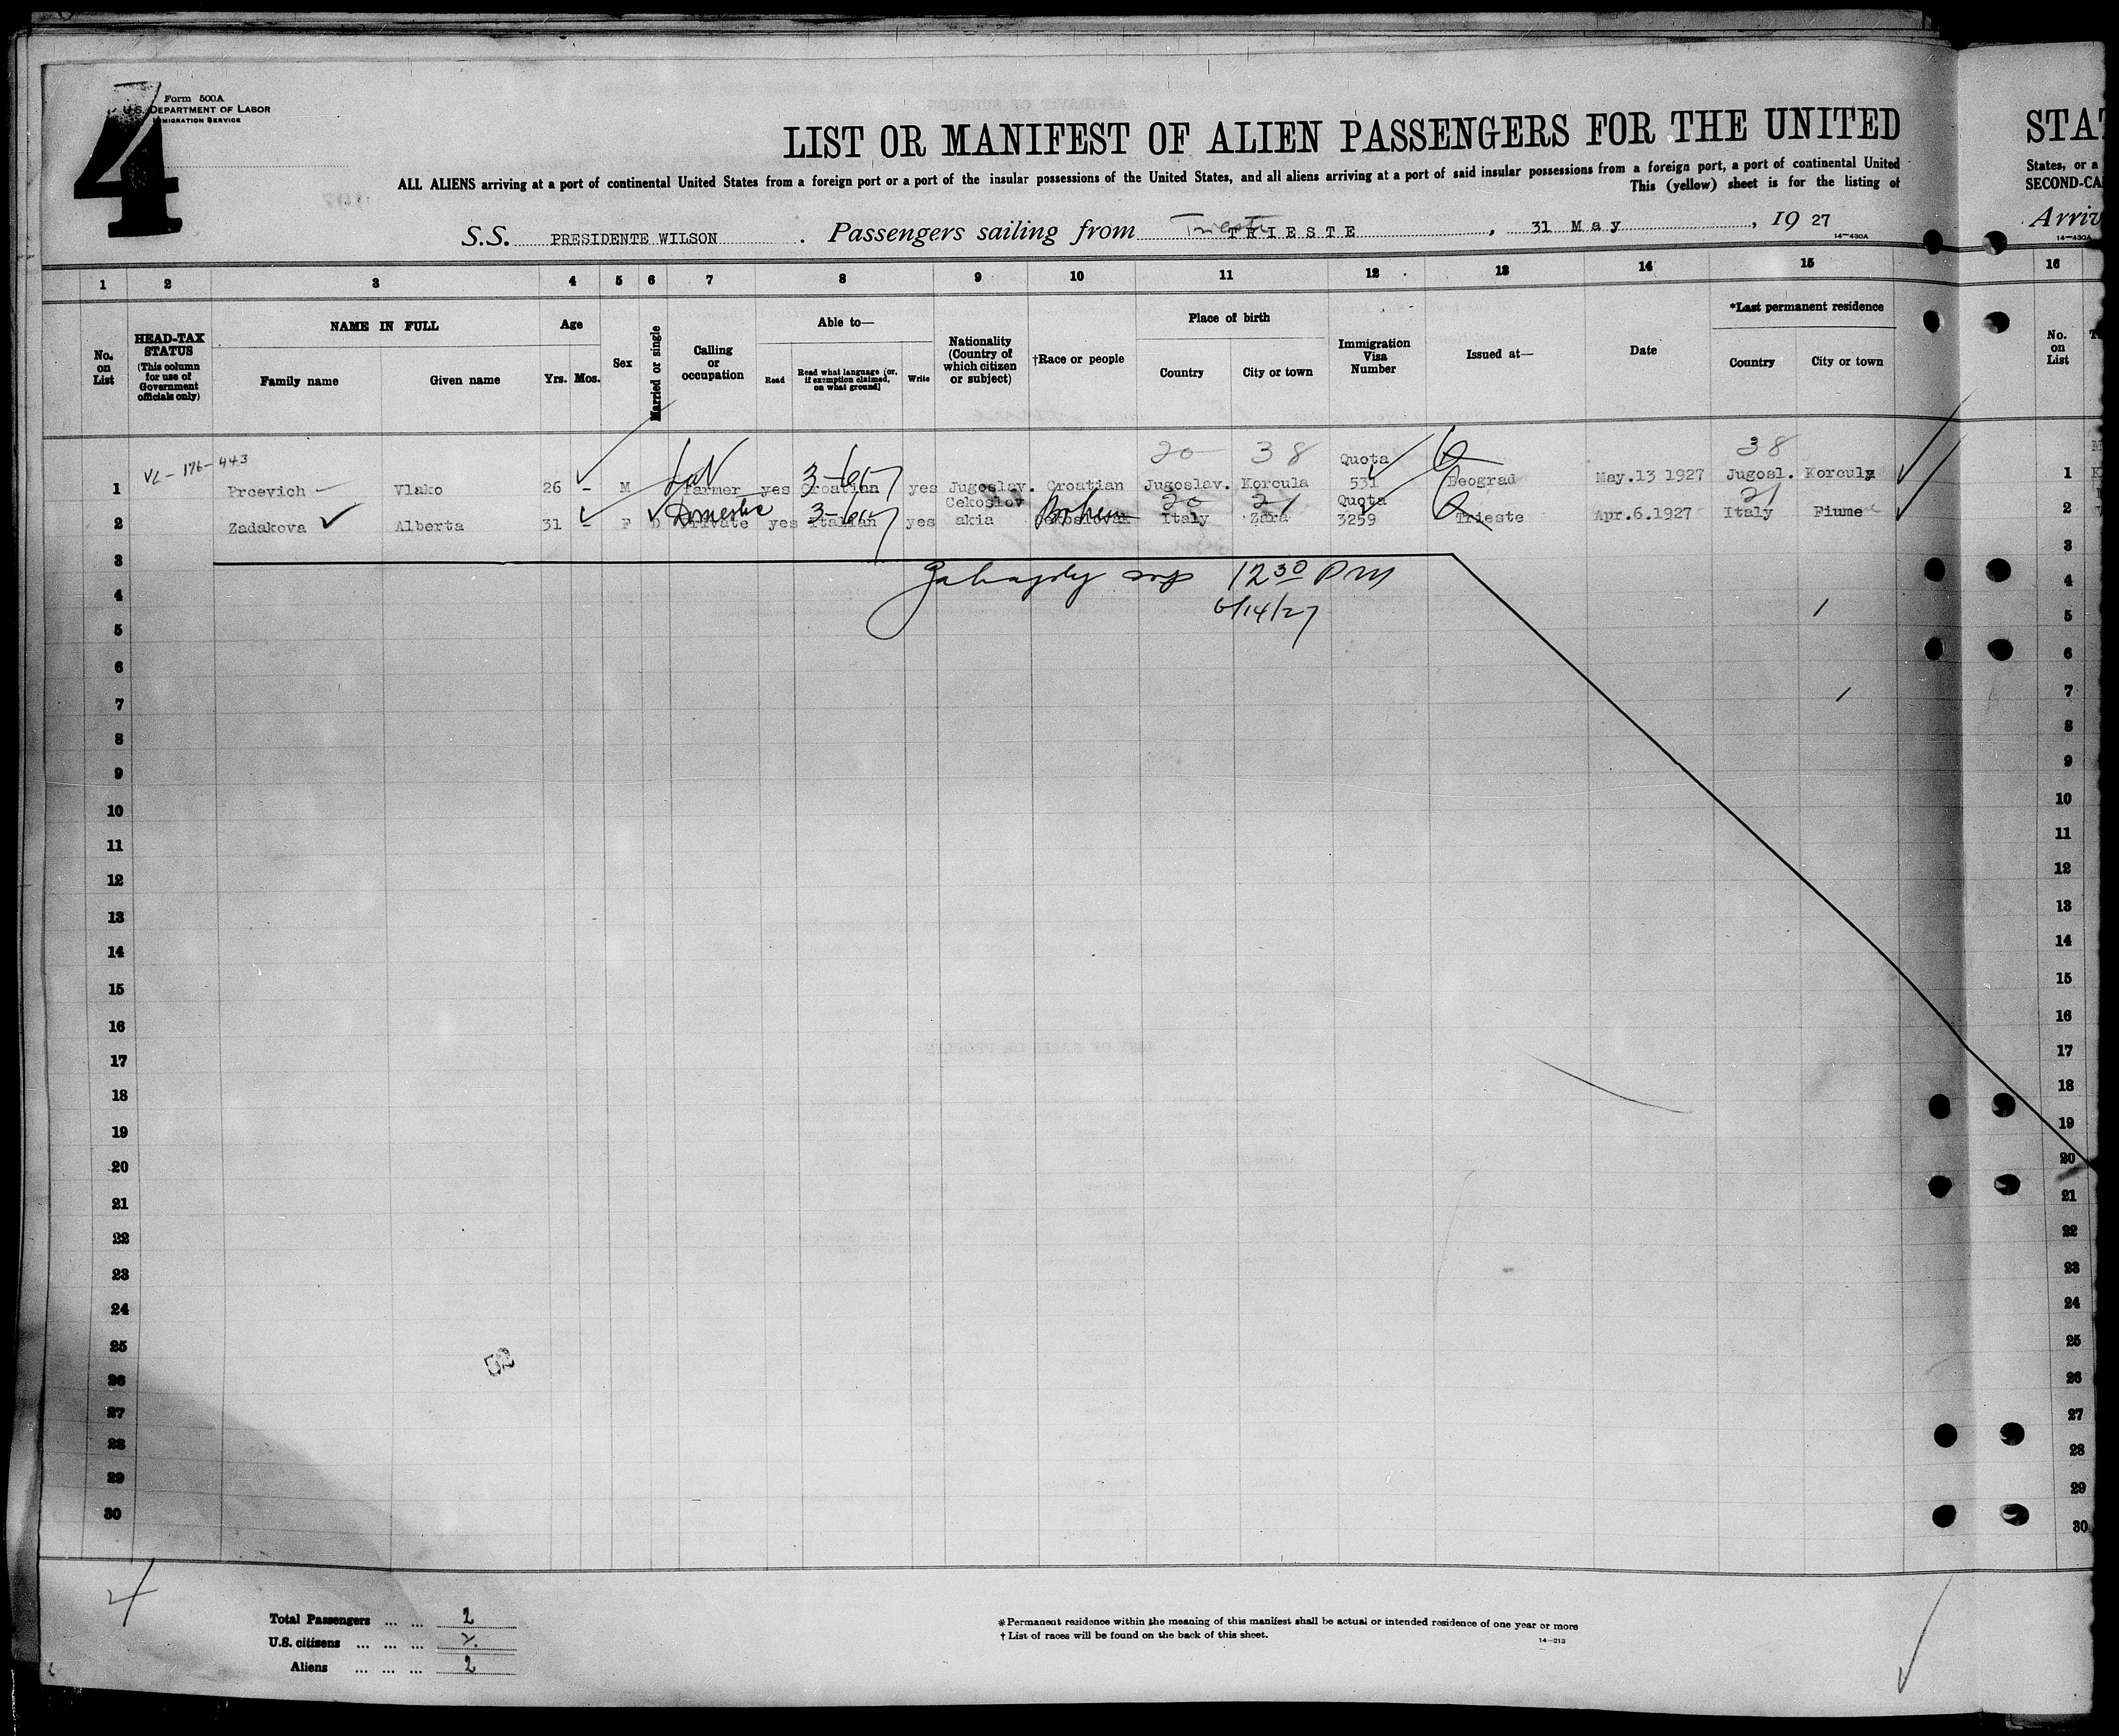 4
Form 500A
U.S. DEPARTMENT OF LABOR
IMMIGRATION SERVICE
LIST OR MANIFEST OF ALIEN PASSENGERS FOR THE UNITED
ALL ALIENS arriving at a port of continental United States from a foreign port or a port of the insular possessions of the United States, and all aliens arriving at a port of said insular possessions from a foreign port, a port of continental United
This (yellow) sheet is for the listing of
STAT
States, or a
SECOND-CA
Arriv
14—430A
S.S. PRESIDENTE WILSON. Passengers sailing from Trieste TRIESTE, 31 May, 19 27
14—430A
1 2 3 4 5 6 7 8 9 10 11 12 13 14 15 16
No. on List
HEAD-TAX STATUS (This column for use of Government officials only)
NAME IN FULL
Family name Given name
Age
Yrs. Mos.
Sex
Married or single
Calling or occupation
Able to—
Read Read what language (or, if exemption claimed, on what ground) Write
Nationality (Country of which citizen or subject)
†Race or people
Place of birth
Country City or town
Immigration Visa Number
Issued at—
Date
*Last permanent residence
Country City or town
No. on List
VL-176-443
20 38 Quota 38
1 Prcevich Vlako 26 - M Farmer yes Croatian yes Jugoslav. Croatian Jugoslav. Korcula 531 Beograd May.13 1927 Jugosl. Korcula 1
Domestic Cekoslov Bohem 20 21 Quota 21
2 Zadakova Alberta 31 - F D Private yes Italian yes akia Cekoslovak Italy Zara 3259 Trieste Apr.6.1927 Italy Fiume 2
3 3
12 30 PM
4 4
6/14/27
5 5
6 6
7 7
8 8
9 9
10 10
11 11
12 12
13 13
14 14
15 15
16 16
17 17
18 18
19 19
20 20
21 21
22 22
23 23
24 24
25 25
26 26
27 27
28 28
29 29
30 30
4
Total Passengers ... ... 2
U.S. citizens ... ... ...
Aliens ... ... ... 2
*Permanent residence within the meaning of this manifest shall be actual or intended residence of one year or more
†List of races will be found on the back of this sheet.
14—213